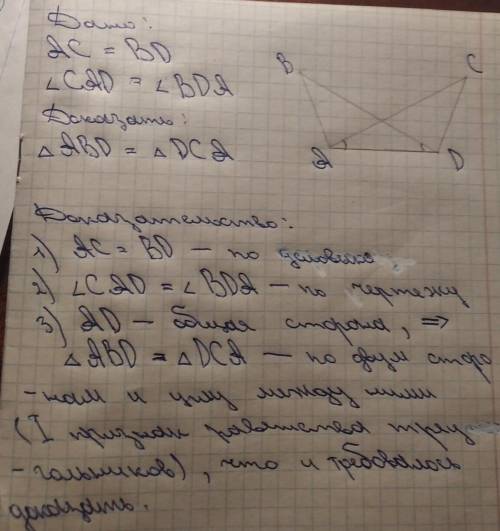 Дано:
AC = BD
∠CAD = ∠BDA
Доказать:
△ABD = △DCA
B
C
A
D
Доказательство:
1) AC = BD — по условию
2) ∠CAD = ∠BDA — по чертежу
3) AD — общая сторона, ⇒
△ABD = △DCA — по двум сторо
-нам и углу между ними
(I признак равенства треу
-гольников), что и требовалось
доказать.